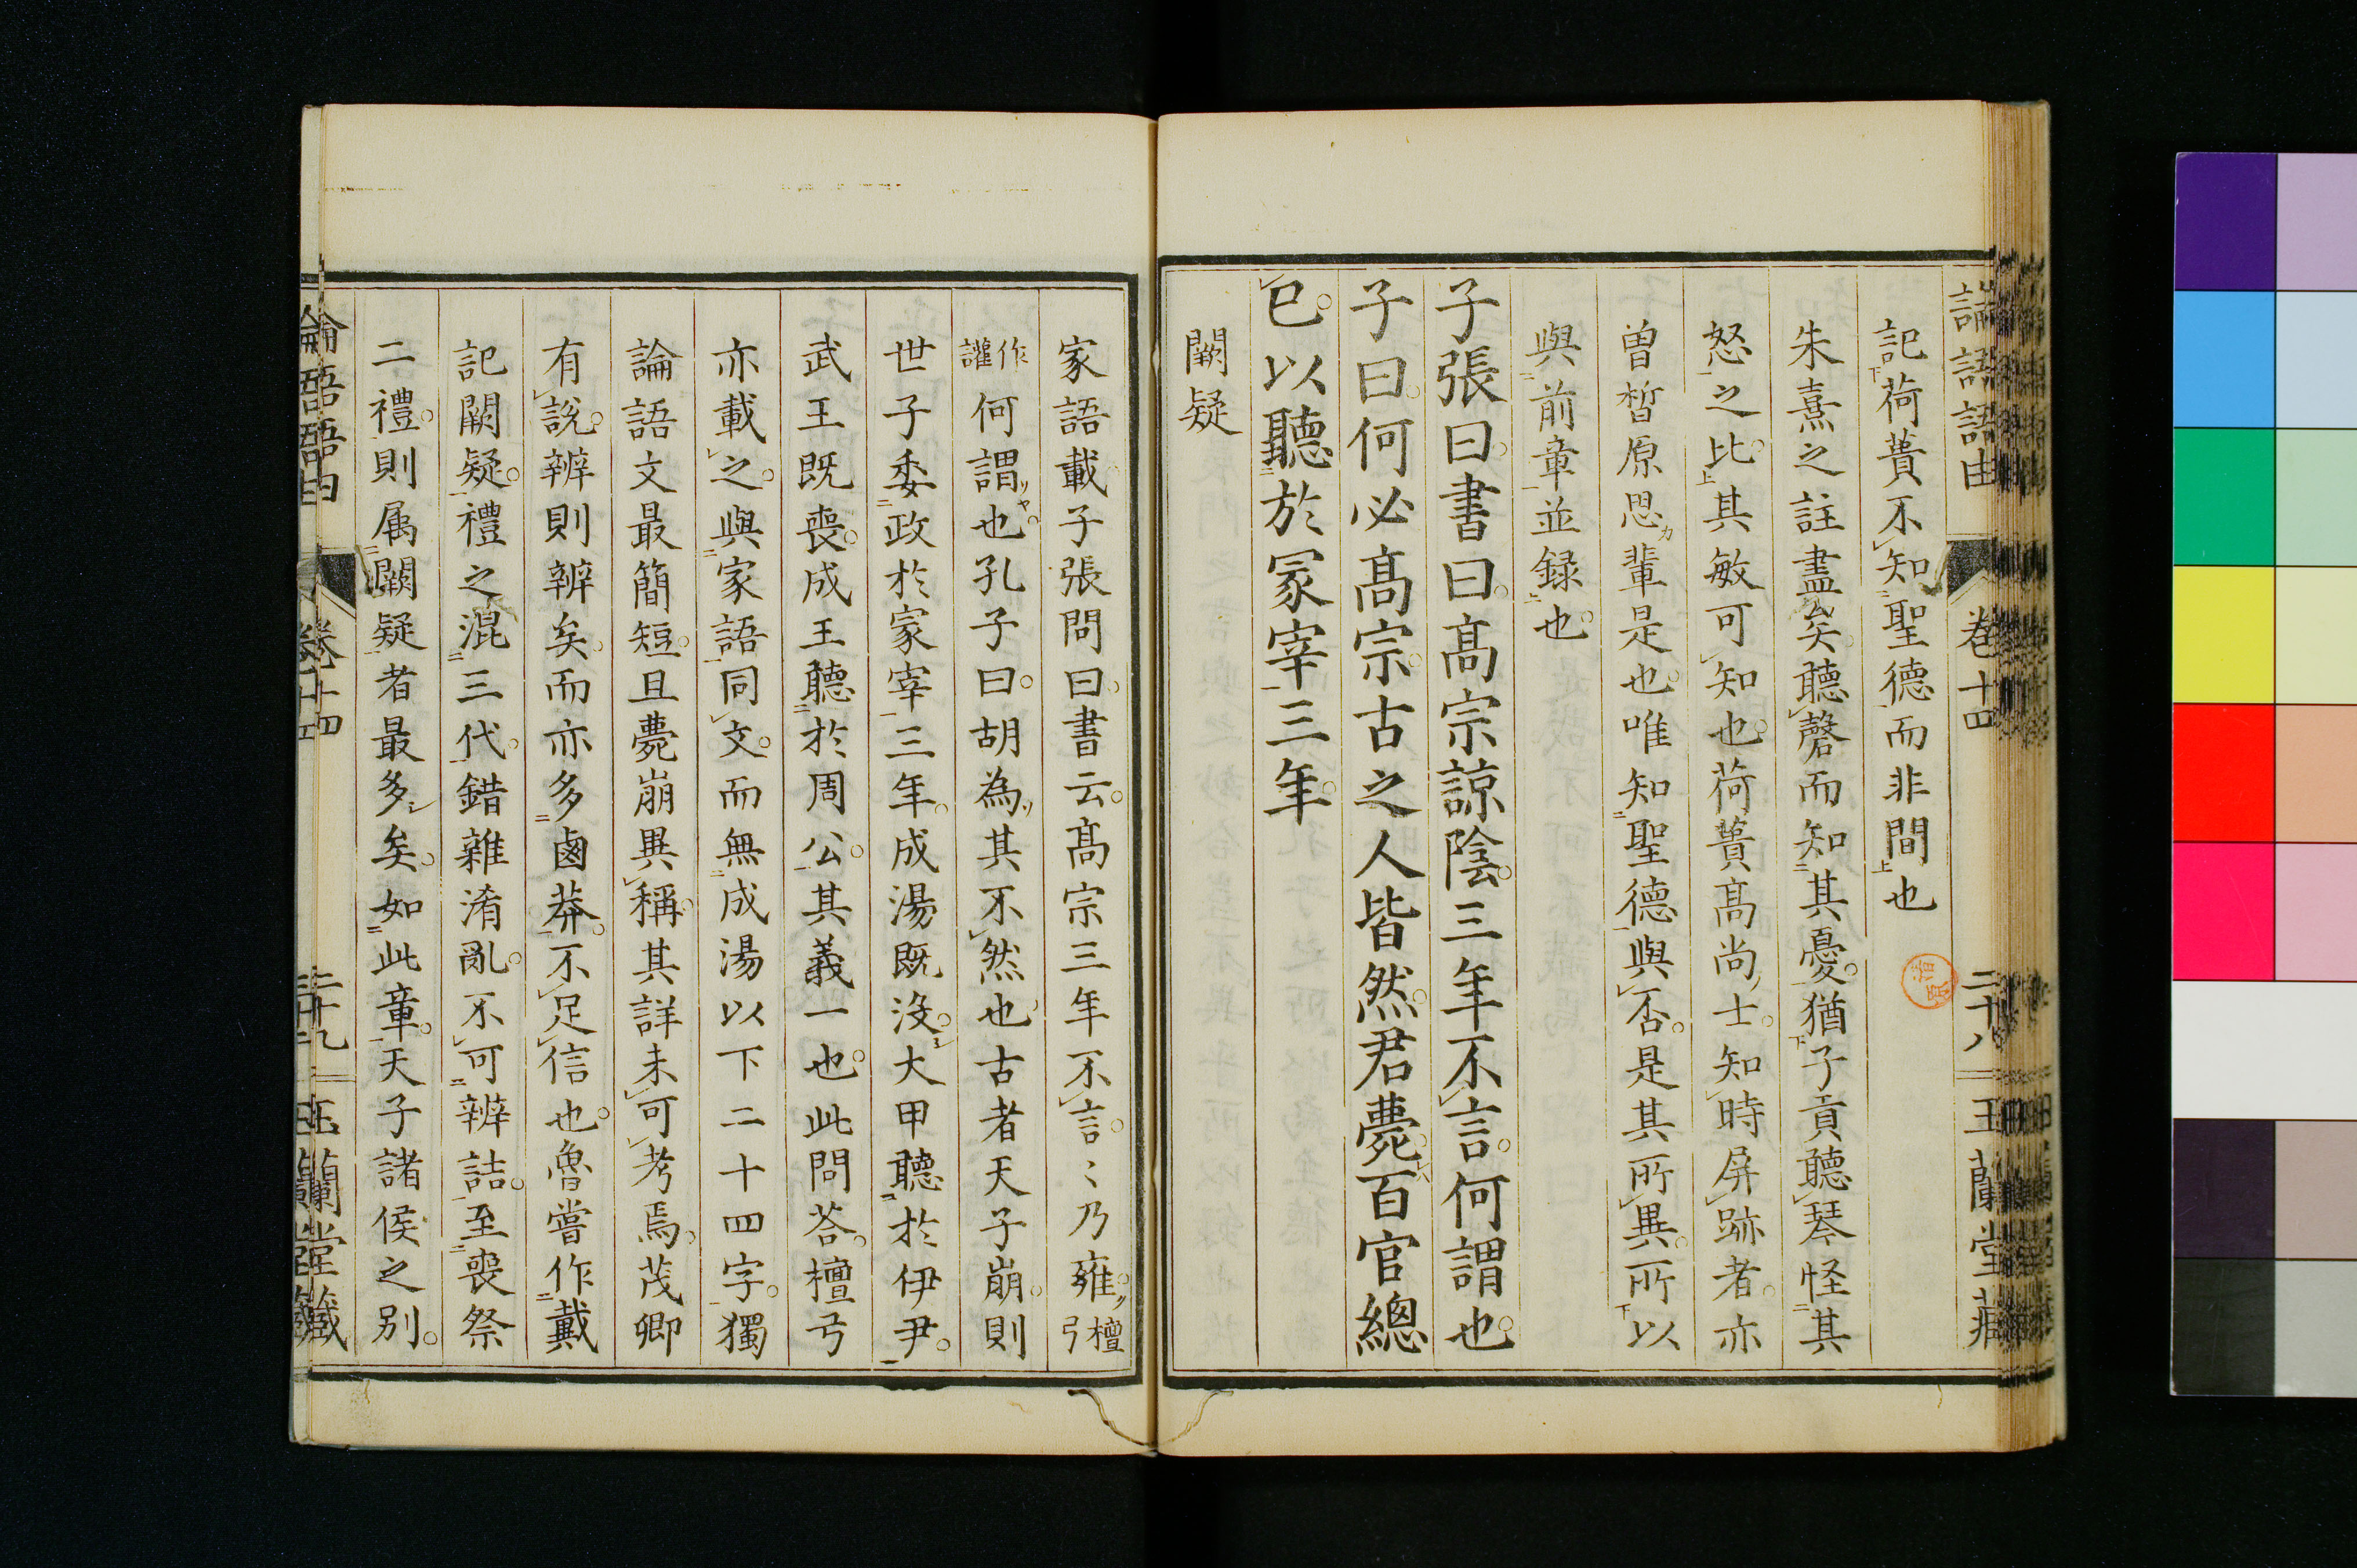 論語語由 卷十四 二十八 玉蘭堂藏
記荷蕢不知聖德而非間也
朱熹之註盡矣聽磬而知其憂猶子貢聽琴怪其
怒之比其敏可知也荷蕢髙尚士知時屏跡者亦
曽晳原思輩是也唯知聖德與否是其所異所以
與前章並録也
子張曰書曰髙宗諒陰三年不言何謂也
子曰何必髙宗古之人皆然君薨百官總
已以聽於冢宰三年
闕疑
家語載子張問曰書云髙宗三年不言〻乃雍檀弓
作讙何謂也孔子曰胡為其不然也古者天子崩則
世子委政於冡宰三年成湯既沒大甲聽於伊尹
武王既喪成王聽於周公其義一也此問荅檀弓
亦載之與家語同文而無成湯以下二十四字獨
論語文最簡短且薨崩異稱其詳未可考焉茂卿
有說辨則辨矣而亦多鹵莽不足信也魯嘗作戴
記闕疑禮之混三代錯雜淆亂不可辨詰至喪祭
二禮則属闕疑者最多矣如此章天子諸侯之別